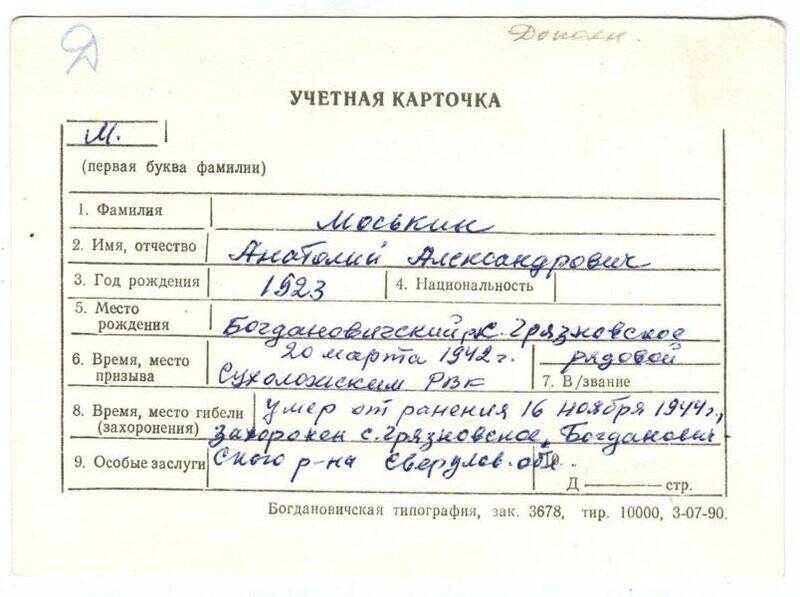 Д
Дополн.
УЧЕТНАЯ КАРТОЧКА
М.
(первая буква фамилии)
1. Фамилия Моськин
2. Имя, отчество Анатолий Александрович
3. Год рождения 1923 4. Национальность
5. Место рождения Богдановичский р-н с. Грязновское
6. Время, место призыва 20 марта 1942 г. Сухоложским РВК
7. В/звание рядовой
8. Время, место гибели (захоронения) умер от ранения 16 ноября 1944 г.,
захоронен с. Грязновское, Богданович-
9. Особые заслуги ского р-на Свердлов. обл.
Д ——— стр.
Богдановичская типография, зак. 3678, тир. 10000, 3-07-90.